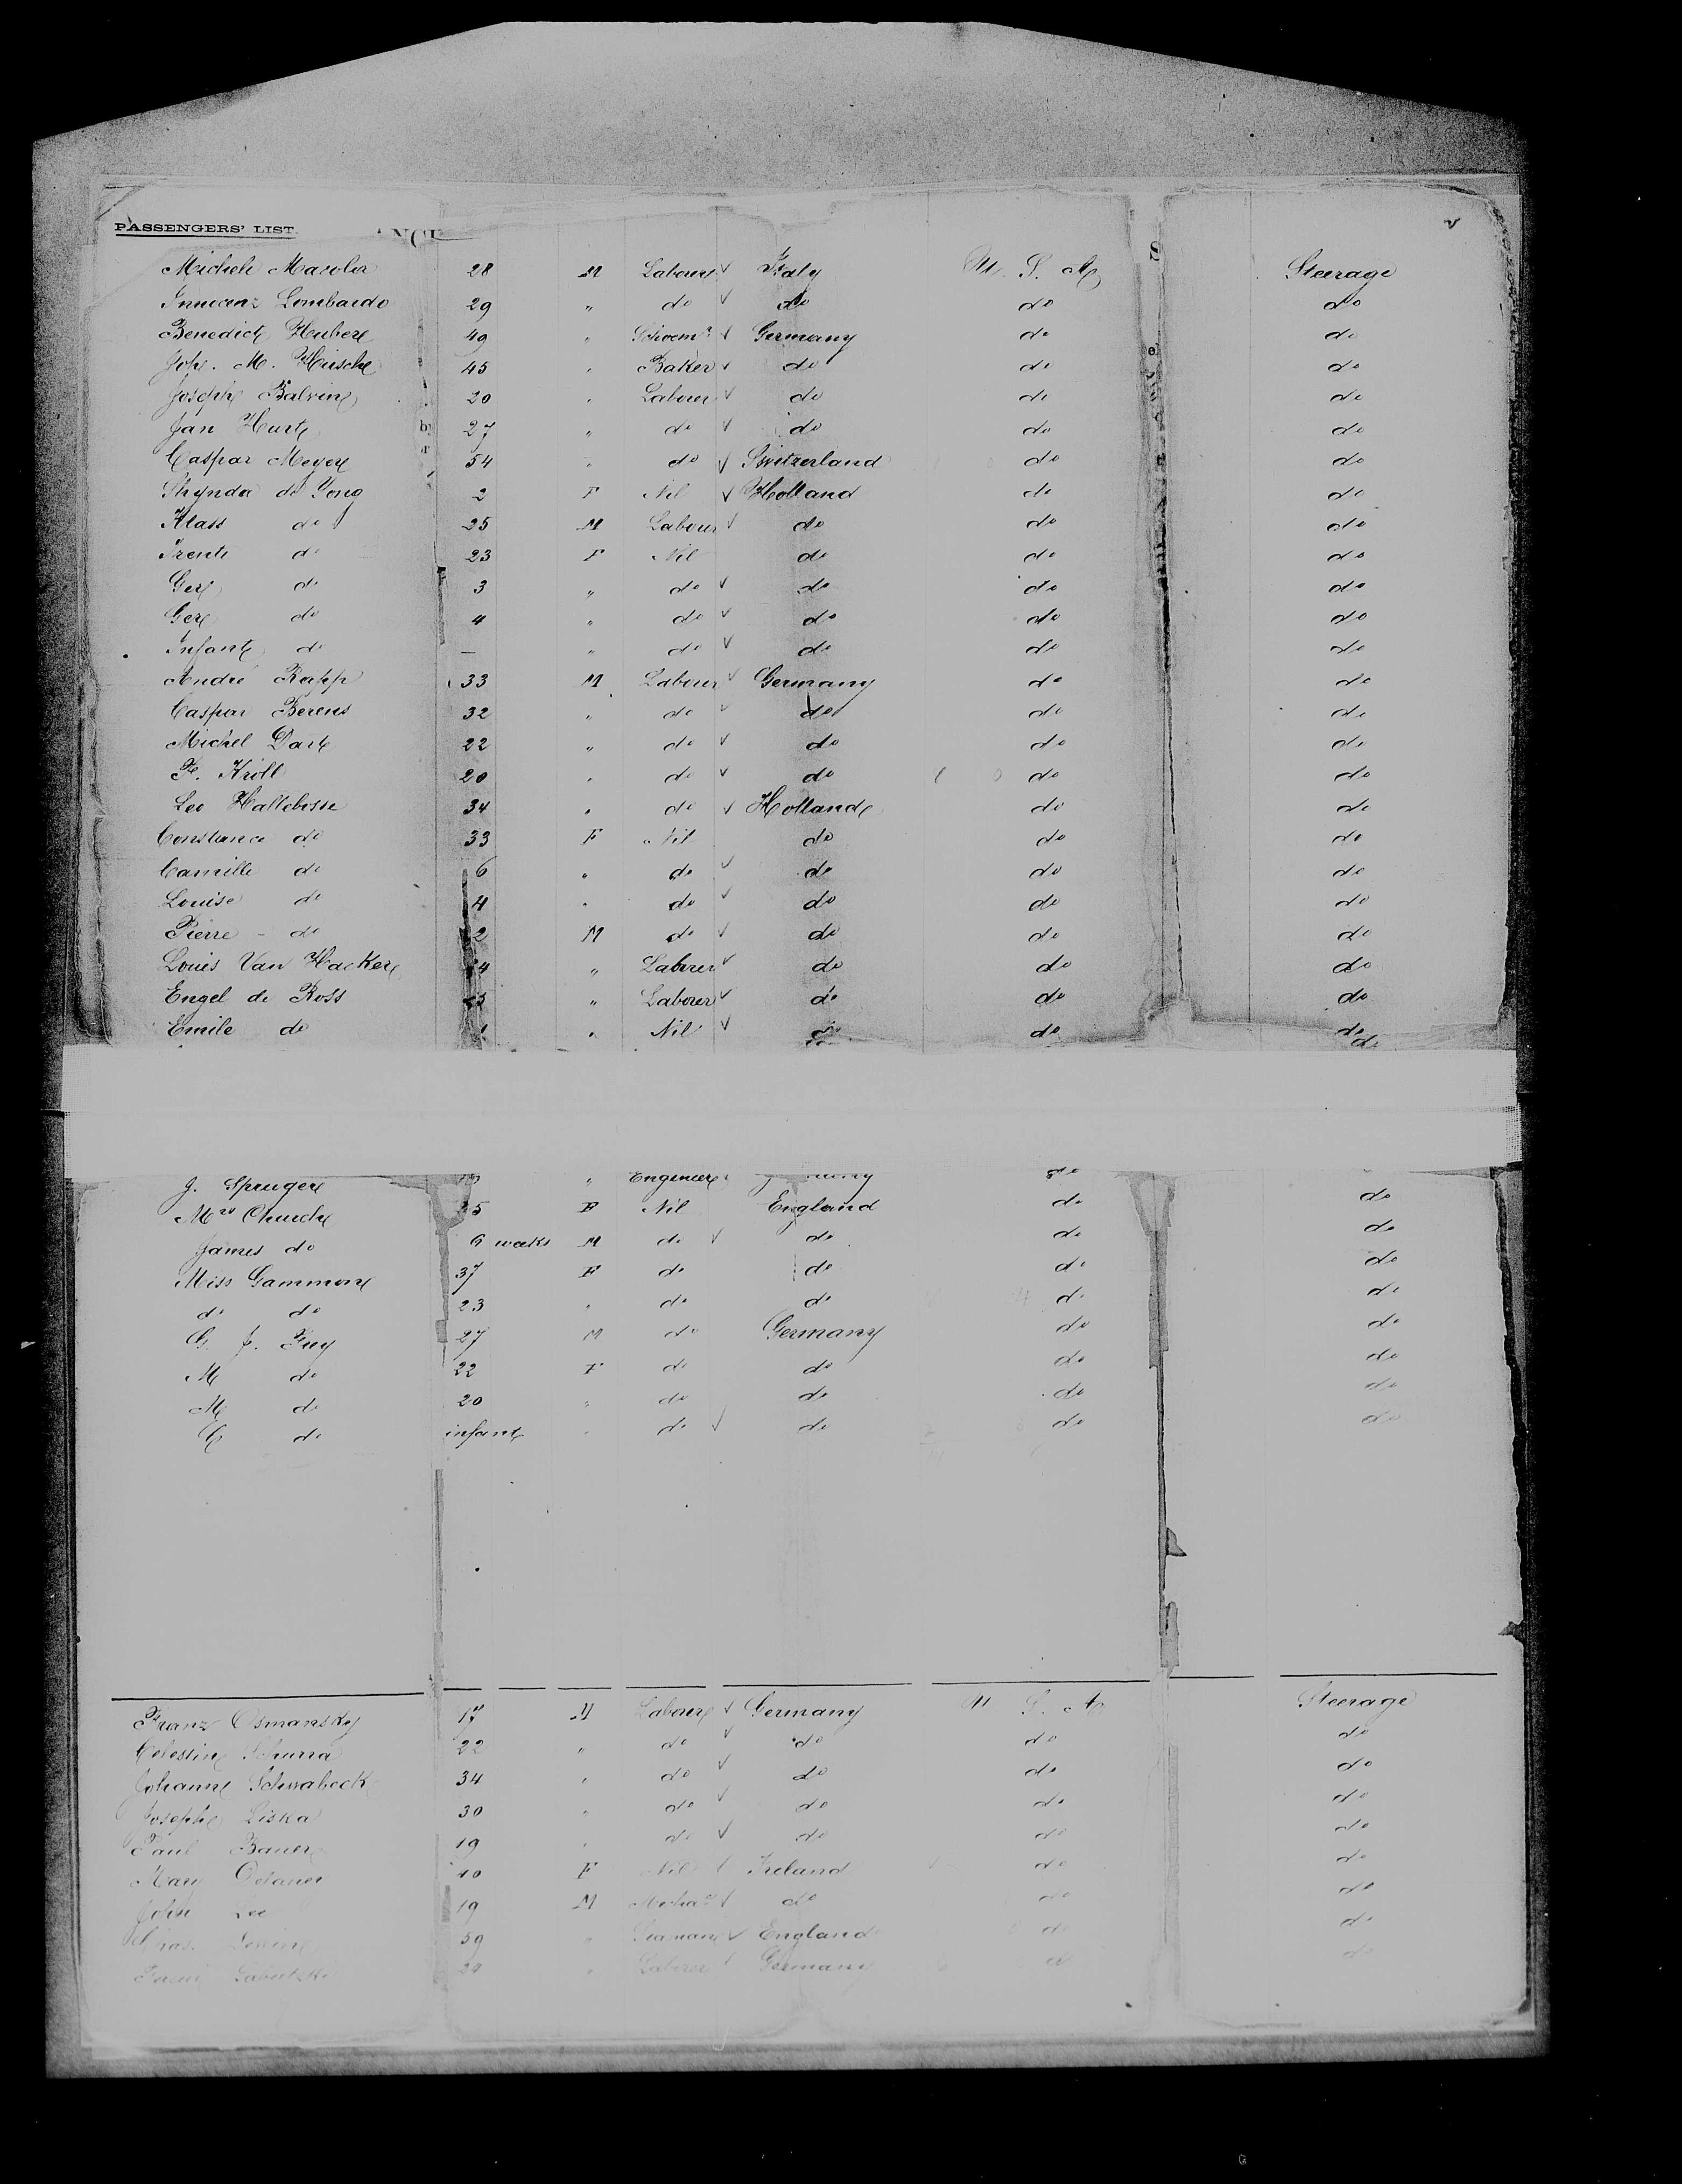 PASSENGERS' LIST.
Michele 28 M Laborer Italy U. S. A. Steerage
Innocenz Lombardo 29 " do do do do
Benedict Huber 49 " Schoem Germany do do
Joh. M. Hirsch 45 " Baker do do do
Joseph Balvin 20 " Laborer do do do
Jan Hurt 27 " do do do do
Caspar Meyer 54 " do Switzerland do do
de Jong 2 F Nil Holland do do
Klass do 25 M Laborer do do do
do 23 F Nil do do do
Ger do 3 " do do do do
Ger do 4 " do do do do
Infant do — " do do do do
André Rapp 33 M Laborer Germany do do
Caspar Berens 32 " do do do do
Michel Dart 22 " do do do do
F. Kroll 20 " do do do do
Leo Hallebosse 34 " do Holland do do
Constance do 33 F Nil do do do
Camille do 6 " do do do do
Louise do 4 " do do do do
Pierre - do 2 M do do do do
Louis Van Hacker 4 " Laborer do do do
Engel de Ross " Laborer do do do
Emile do " Nil do do do
do
J. Spruger " Engineer do
Mrs Church 35 F Nil England do do
James do 6 weeks M do do do do
Miss Gammon 37 F do do do do
do do 23 " do do do do
G. J. 27 M do Germany do do
M do 22 F do do do do
M do 20 " do do do do
C do infant " do do do do
Franz Osmansky 17 M Laborer Germany U. S. A. Steerage
Celestin Schurra 22 " do do do do
Johann Schwabeck 34 " do do do do
Joseph Liska 30 " do do do do
Paul Bauer 19 " do do do do
Mary F Nil Ireland do do
John Lee 19 M do do do
Chas. 59 " Seaman England do do
" Laborer Germany do do